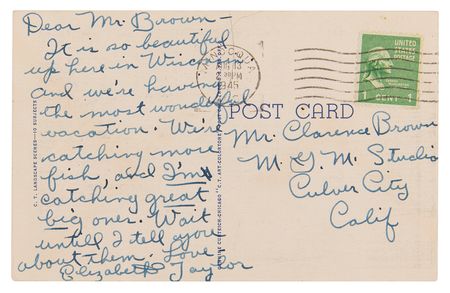 Dear Mr. Brown-
It is so beautiful
up here in Wisconsin
and we're having
the most wonderful
vacation. We're
catching more
fish, and I'm
catching great
big ones. Wait
until I tell you
about them. Love
Elizabeth Taylor
C. T. LANDSCAPE SCENES—10 SUBJECTS
1945
UNITED
STATES
POSTAGE
1 CENT 1
POST CARD
Mr. Clarence Brown
M. G. M. Studio
Culver City
Calif